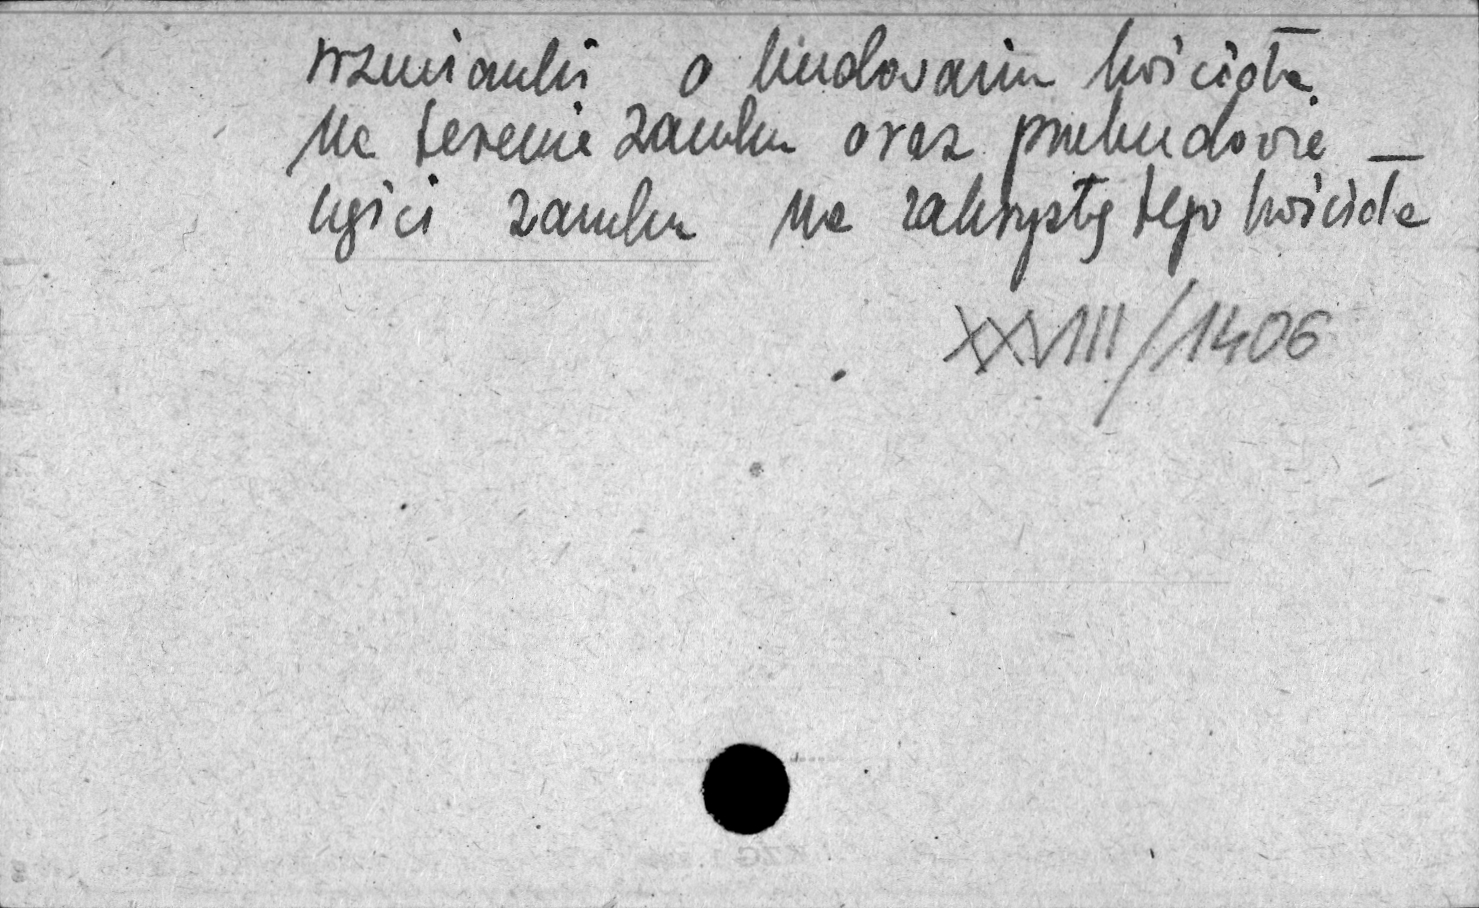 wzmianki o budowaniu kościoła
na terenie zamku oraz przebudowie
części zamku na zakrystię tego kościoła
XXVIII/1406